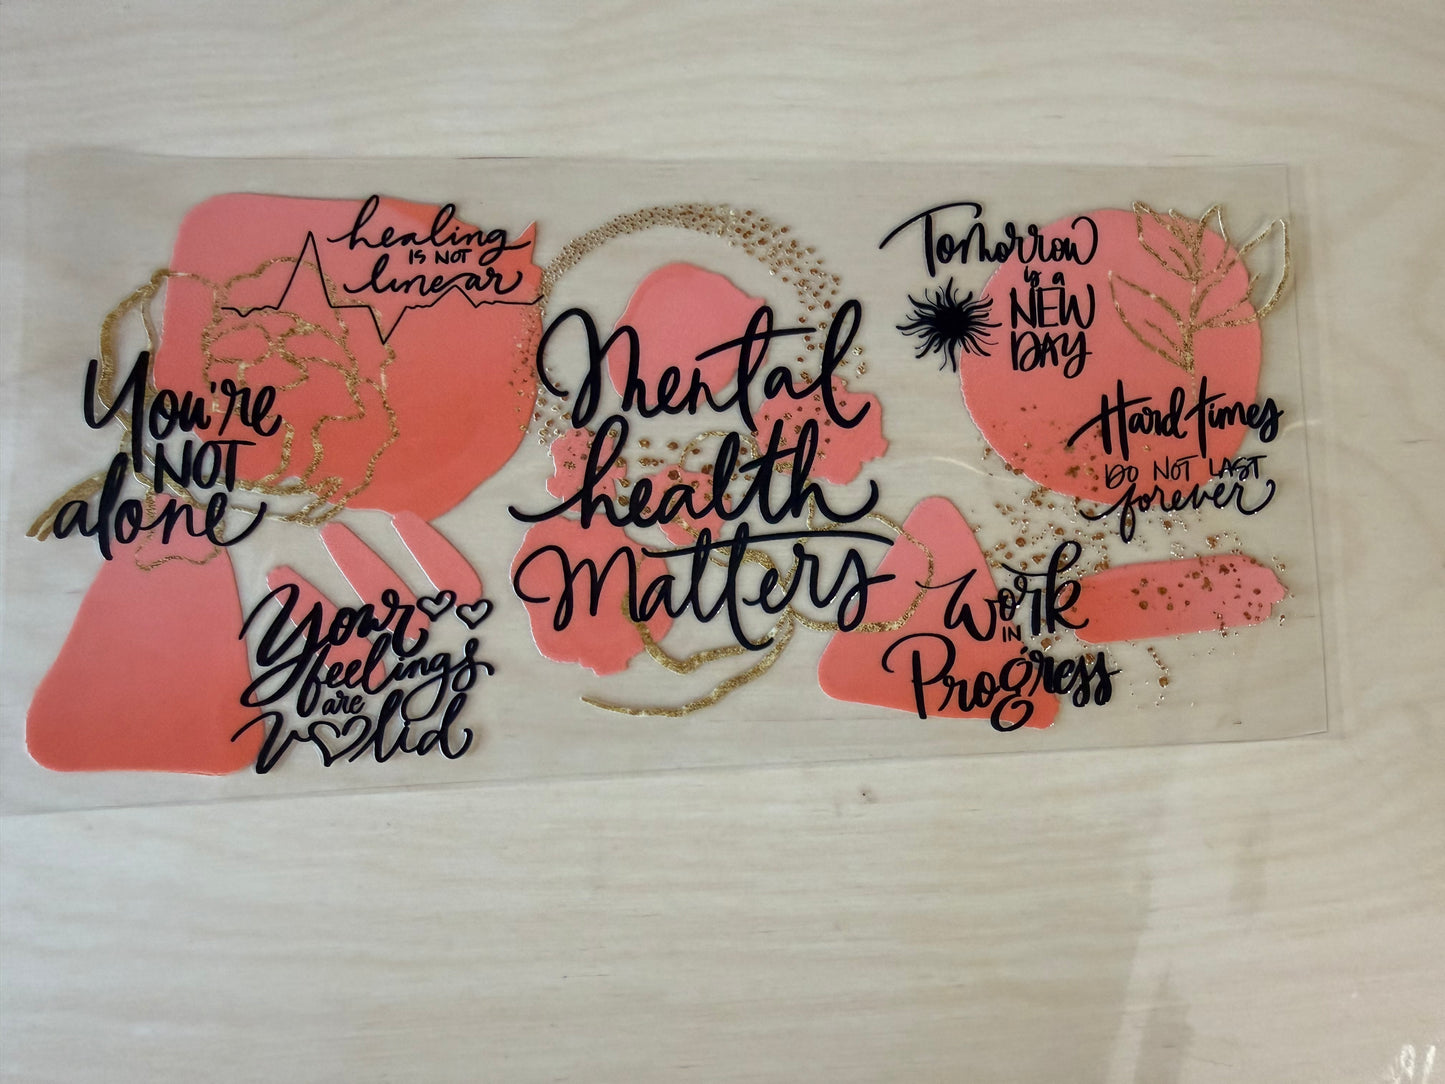 healing
IS NOT
linear
You're
NOT
alone
Your
feelings
are
valid
Mental
health
Matters
Tomorrow
is a
NEW
DAY
Hard times
DO NOT LAST
forever
Work
IN
Progress